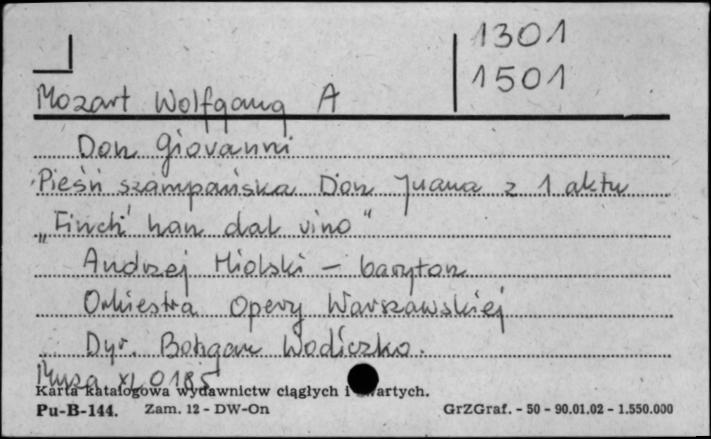 1301
1501
Mozart Wolfgang A
Don Giovanni
Pieśń szampańska Don Juana z 1 aktu
„Finch' han dal vino"
Andrzej Hiolski - baryton
Orkiestra Opery Warszawskiej
Dyr. Bohdan Wodiczko.
Muza XL 0185
Karta katalogowa wydawnictw ciągłych i zwartych.
Pu-B-144. Zam. 12 - DW-On GrZGraf. - 50 - 90.01.02 - 1.550.000